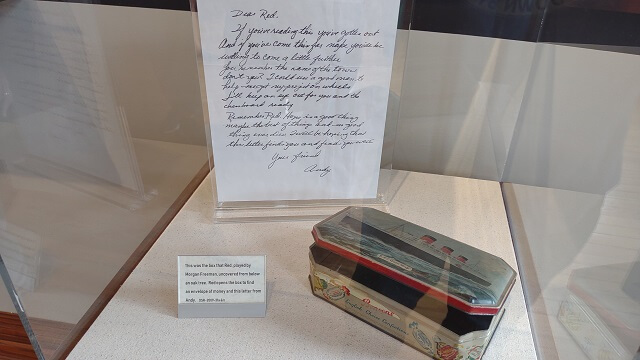 Dear Red.
If you're reading this you've gotten out
And if you've come this far maybe you'd be
willing to come a little further
You remember the name of the town
don't you? I could use a good man to
help me get my project on wheels
I'll keep an eye out for you and the
chessboard ready
Remember Red. Hope is a good thing
maybe the best of things and no good
thing ever dies I will be hoping that
this letter finds you and finds you well
Your friend
Andy
This was the box that Red, played by
Morgan Freeman, uncovered from below
an oak tree. Red opens the box to find
an envelope of money and this letter from
Andy.